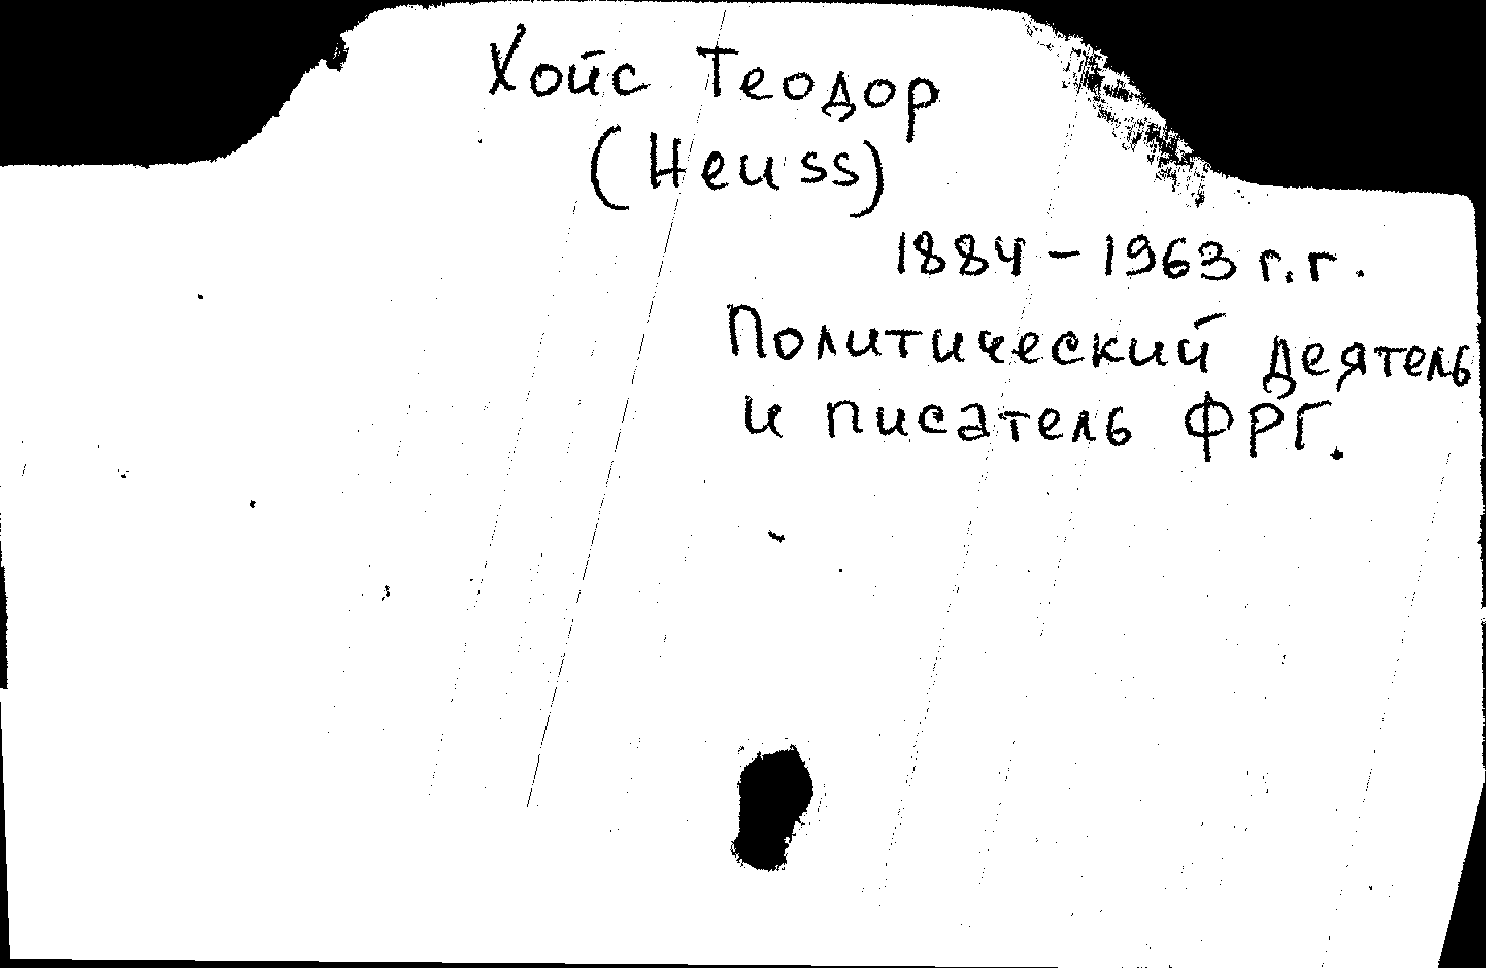 Хойс Теодор
(Heuss)
1884 - 1963 г.г.
Политический деятель
и писатель ФРГ.